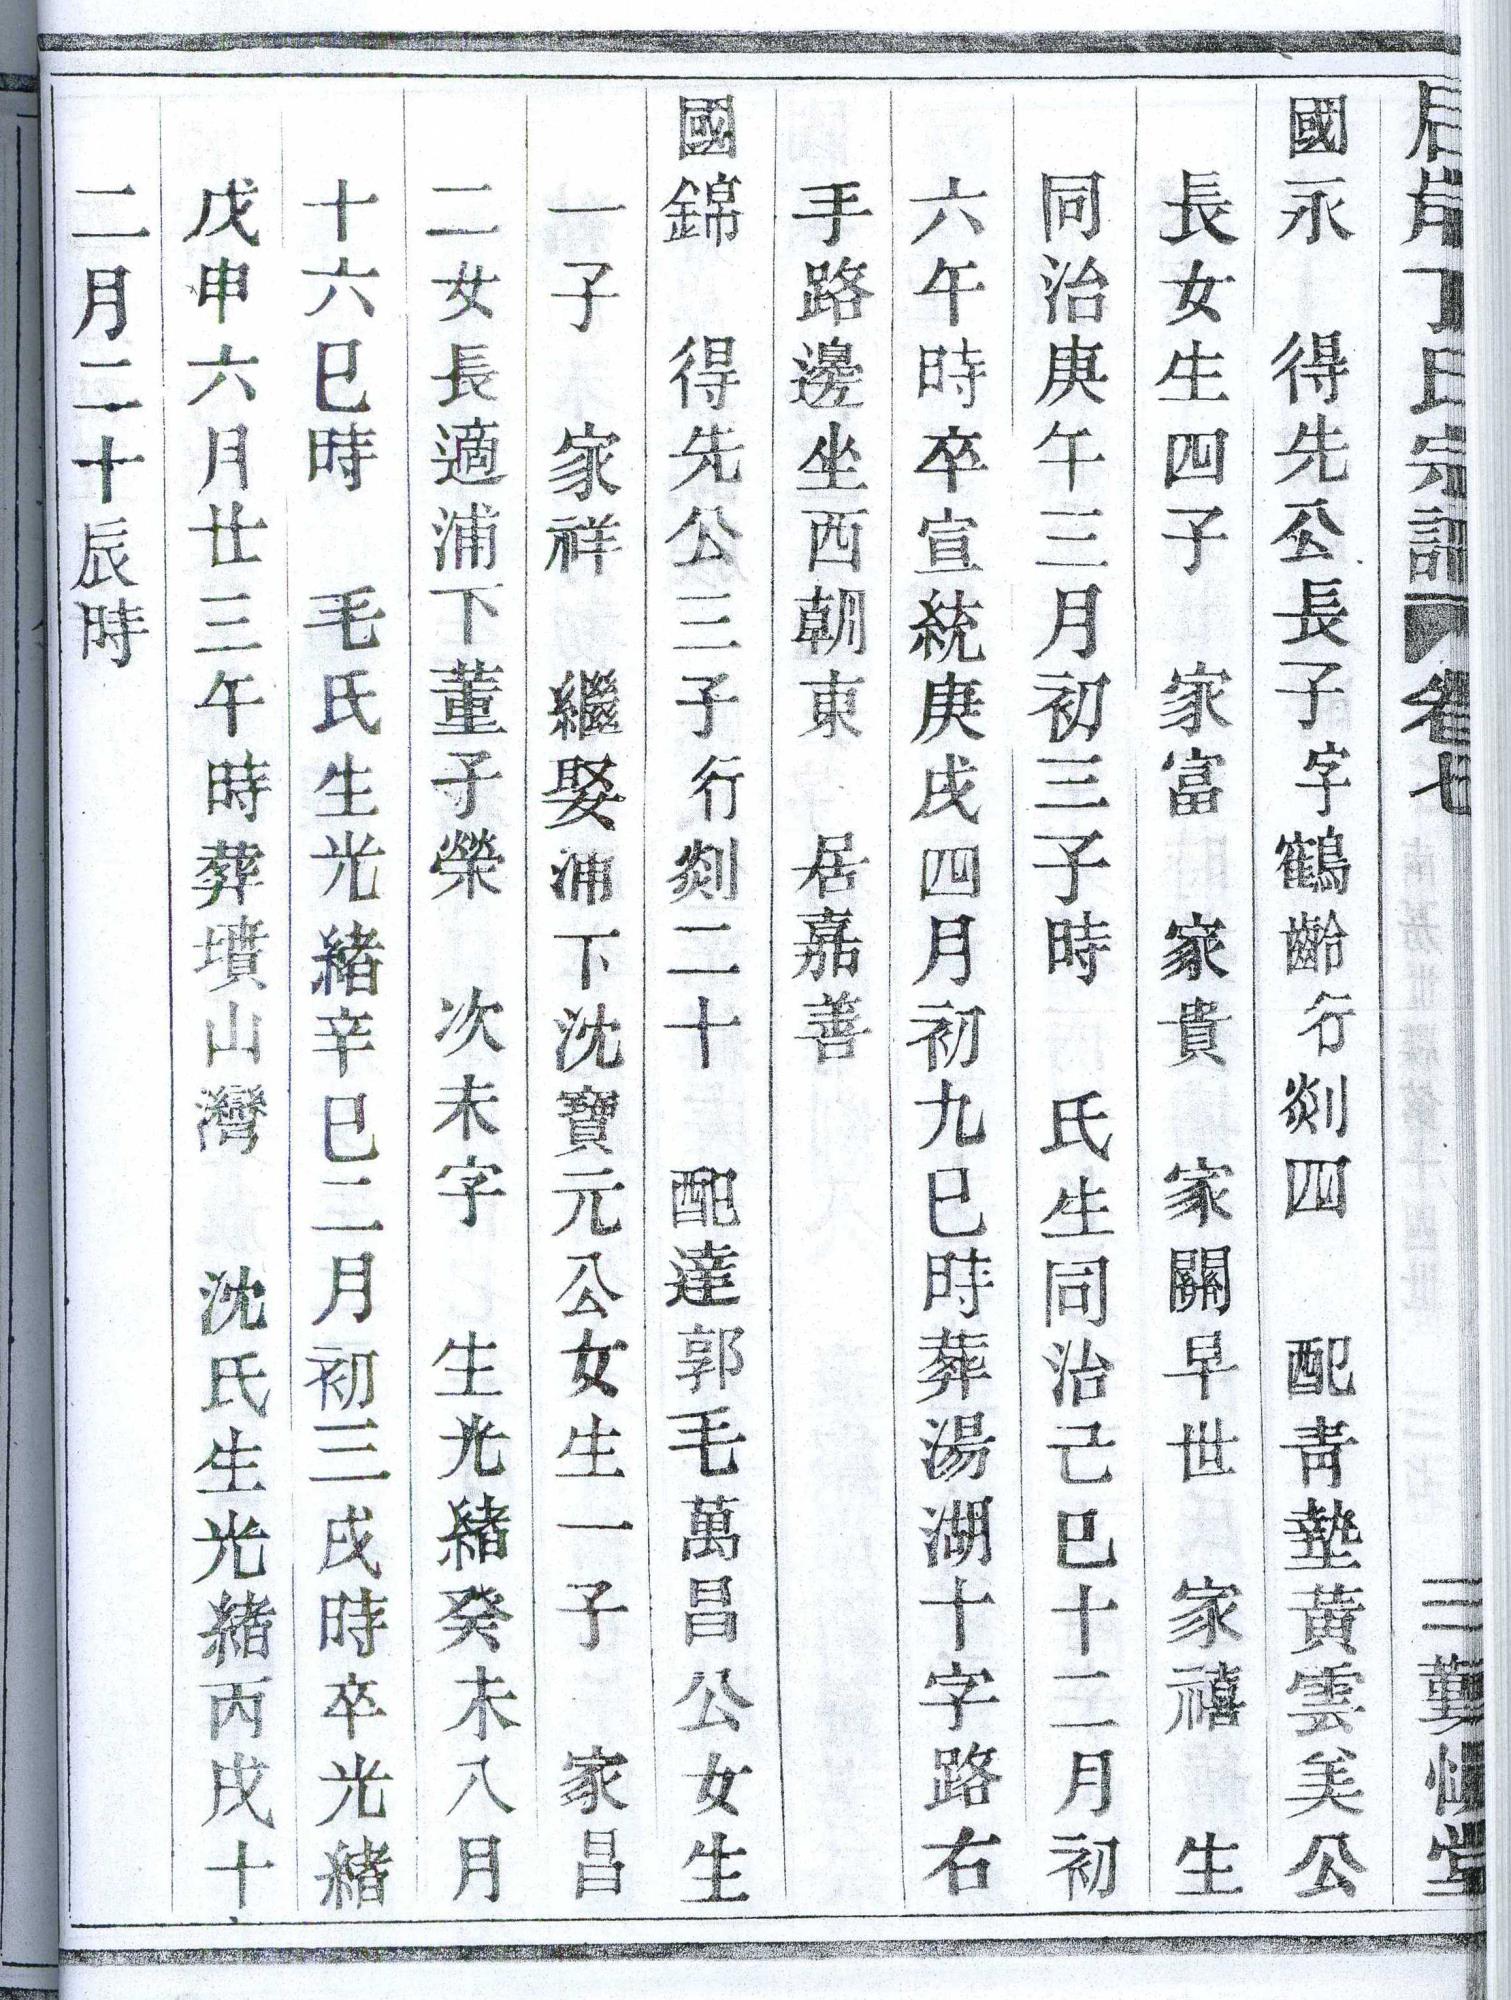 丁氏宗譜 卷七 三 勤慎堂
國永 得先公長子字鶴齡行剡四 配青墊黃雲美公
長女生四子 家富 家貴 家關早世 家禧 生
同治庚午三月初三子時 氏生同治己巳十二月初
六午時卒宣統庚戌四月初九巳時葬湯湖十字路右
手路邊坐西朝東 居嘉善
國錦 得先公三子行剡二十 配達郭毛萬昌公女生
一子 家祥 繼娶浦下沈寶元公女生一子 家昌
二女長適浦下董子榮 次未字 生光緒癸未八月
十六巳時 毛氏生光緒辛巳二月初三戌時卒光緒
戊申六月廿三午時葬墳山灣 沈氏生光緒丙戌十
二月二十辰時